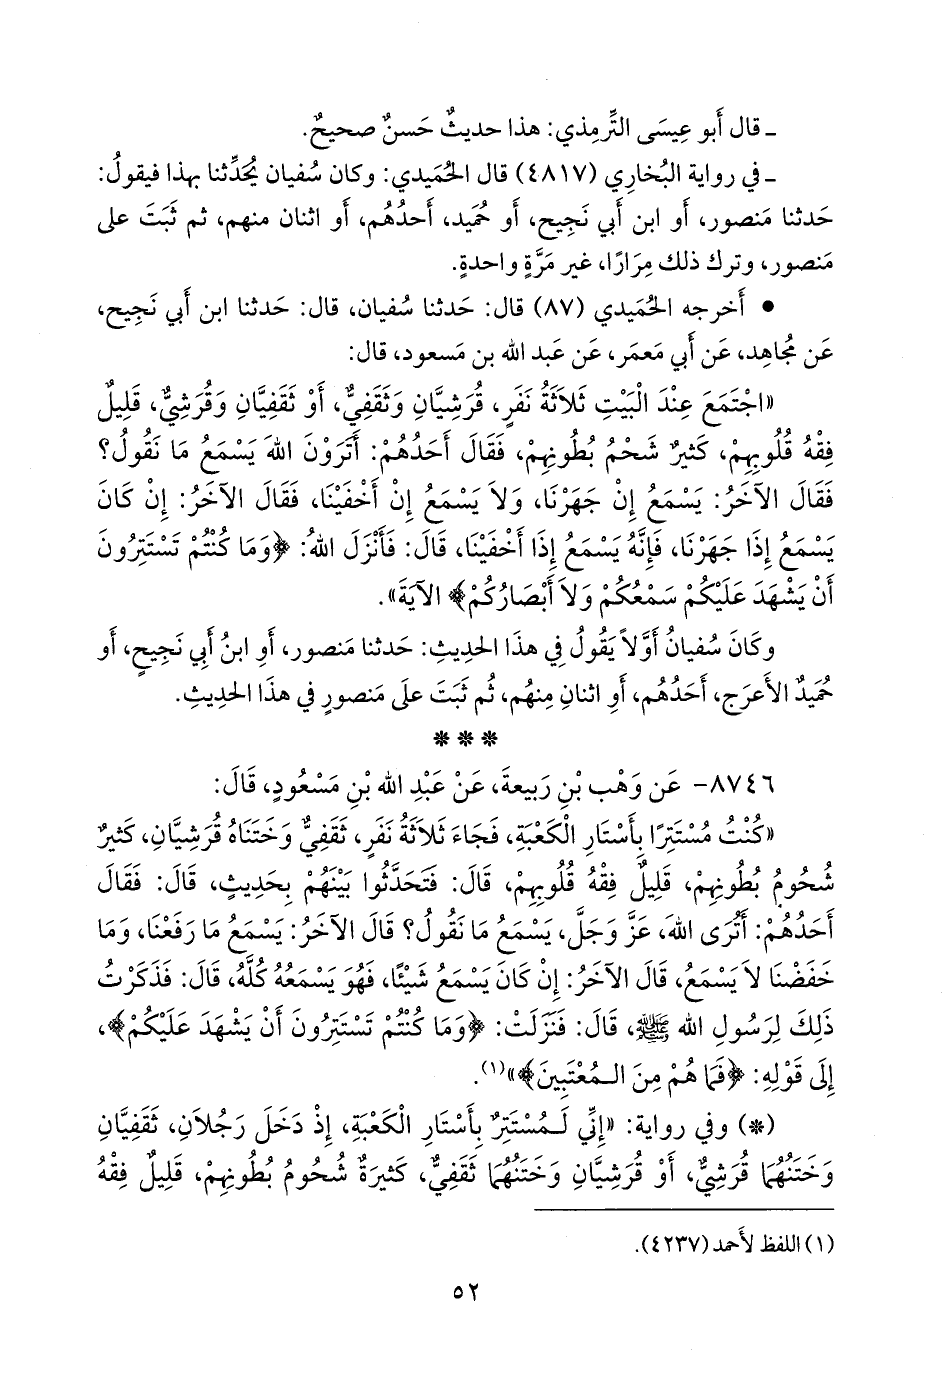 ـ قال أَبو عِيسَى التِّرمِذي: هذا حديثٌ حَسنٌ صحيحٌ.
ـ في رواية البُخاري (٤٨١٧) قال الحُمَيدي: وكان سُفيان يُحَدِّثنا بهذا فيقولُ:
حَدثنا مَنصور، أَو ابن أَبي نَجيح، أَو حُميد، أَحدُهُم، أَو اثنان منهم، ثم ثَبَتَ على
مَنصور، وترك ذلك مِرَارًا، غير مَرَّةٍ واحدةٍ.
• أَخرجه الحُمَيدي (٨٧) قال: حَدثنا سُفيان، قال: حَدثنا ابن أَبي نَجيح،
عَن مُجاهِد، عَن أَبي مَعمَر، عَن عَبد الله بن مَسعود، قال:
«اجْتَمَعَ عِنْدَ الْبَيْتِ ثَلَاثَةُ نَفَرٍ، قُرَشِيَّانِ وَثَقَفِيٌّ، أَوْ ثَقَفِيَّانِ وَقُرَشِيٌّ، قَلِيلٌ
فِقْهُ قُلُوبِهِمْ، كَثِيرٌ شَحْمُ بُطُونِهِمْ، فَقَالَ أَحَدُهُمْ: أَتُرَوْنَ اللهَ يَسْمَعُ مَا نَقُولُ؟
فَقَالَ الآخَرُ: يَسْمَعُ إِنْ جَهَرْنَا، وَلَا يَسْمَعُ إِنْ أَخْفَيْنَا، فَقَالَ الآخَرُ: إِنْ كَانَ
يَسْمَعُ إِذَا جَهَرْنَا، فَإِنَّهُ يَسْمَعُ إِذَا أَخْفَيْنَا، قَالَ: فَأَنْزَلَ اللهُ: ﴿وَمَا كُنْتُمْ تَسْتَتِرُونَ
أَنْ يَشْهَدَ عَلَيْكُمْ سَمْعُكُمْ وَلَا أَبْصَارُكُمْ﴾ الآيَةَ».
وكَانَ سُفيانُ أَوَّلًا يَقُولُ فِي هذَا الحَدِيثِ: حَدثنا مَنصور، أَوِ ابنُ أَبِي نَجِيحٍ، أَو
حُمَيدٌ الأَعرَج، أَحَدُهُم، أَوِ اثنانِ مِنهُم، ثُم ثَبَتَ علَى مَنصورٍ في هذَا الحَديثِ.
* * *
٨٧٤٦- عَن وَهْبِ بْنِ رَبِيعةَ، عَنْ عَبْدِ اللهِ بْنِ مَسْعُودٍ، قَالَ:
«كُنْتُ مُسْتَتِرًا بِأَسْتَارِ الْكَعْبَةِ، فَجَاءَ ثَلَاثَةُ نَفَرٍ، ثَقَفِيٌّ وَخَتَنَاهُ قُرَشِيَّانِ، كَثِيرٌ
شُحُومُ بُطُونِهِمْ، قَلِيلٌ فِقْهُ قُلُوبِهِمْ، قَالَ: فَتَحَدَّثُوا بَيْنَهُمْ بِحَدِيثٍ، قَالَ: فَقَالَ
أَحَدُهُمْ: أَتُرَى اللهَ، عَزَّ وَجَلَّ، يَسْمَعُ مَا نَقُولُ؟ قَالَ الآخَرُ: يَسْمَعُ مَا رَفَعْنَا، وَمَا
خَفَضْنَا لَا يَسْمَعُ، قَالَ الآخَرُ: إِنْ كَانَ يَسْمَعُ شَيْئًا، فَهُوَ يَسْمَعُهُ كُلَّهُ، قَالَ: فَذَكَرْتُ
ذَلِكَ لِرَسُولِ اللهِ ﷺ، قَالَ: فَنَزَلَتْ: ﴿وَمَا كُنْتُمْ تَسْتَتِرُونَ أَنْ يَشْهَدَ عَلَيْكُمْ﴾،
إِلَى قَوْلِهِ: ﴿فَمَا هُمْ مِنَ الْمُعْتَبِينَ﴾»(١).
(*) وفي رواية: «إِنِّي لَمُسْتَتِرٌ بِأَسْتَارِ الْكَعْبَةِ، إِذْ دَخَلَ رَجُلَانِ، ثَقَفِيَّانِ
وَخَتَنُهُمَا قُرَشِيٌّ، أَوْ قُرَشِيَّانِ وَخَتَنُهُمَا ثَقَفِيٌّ، كَثِيرَةٌ شُحُومُ بُطُونِهِمْ، قَلِيلٌ فِقْهُ
(١) اللفظ لأَحمد (٤٢٣٧).
٥٢